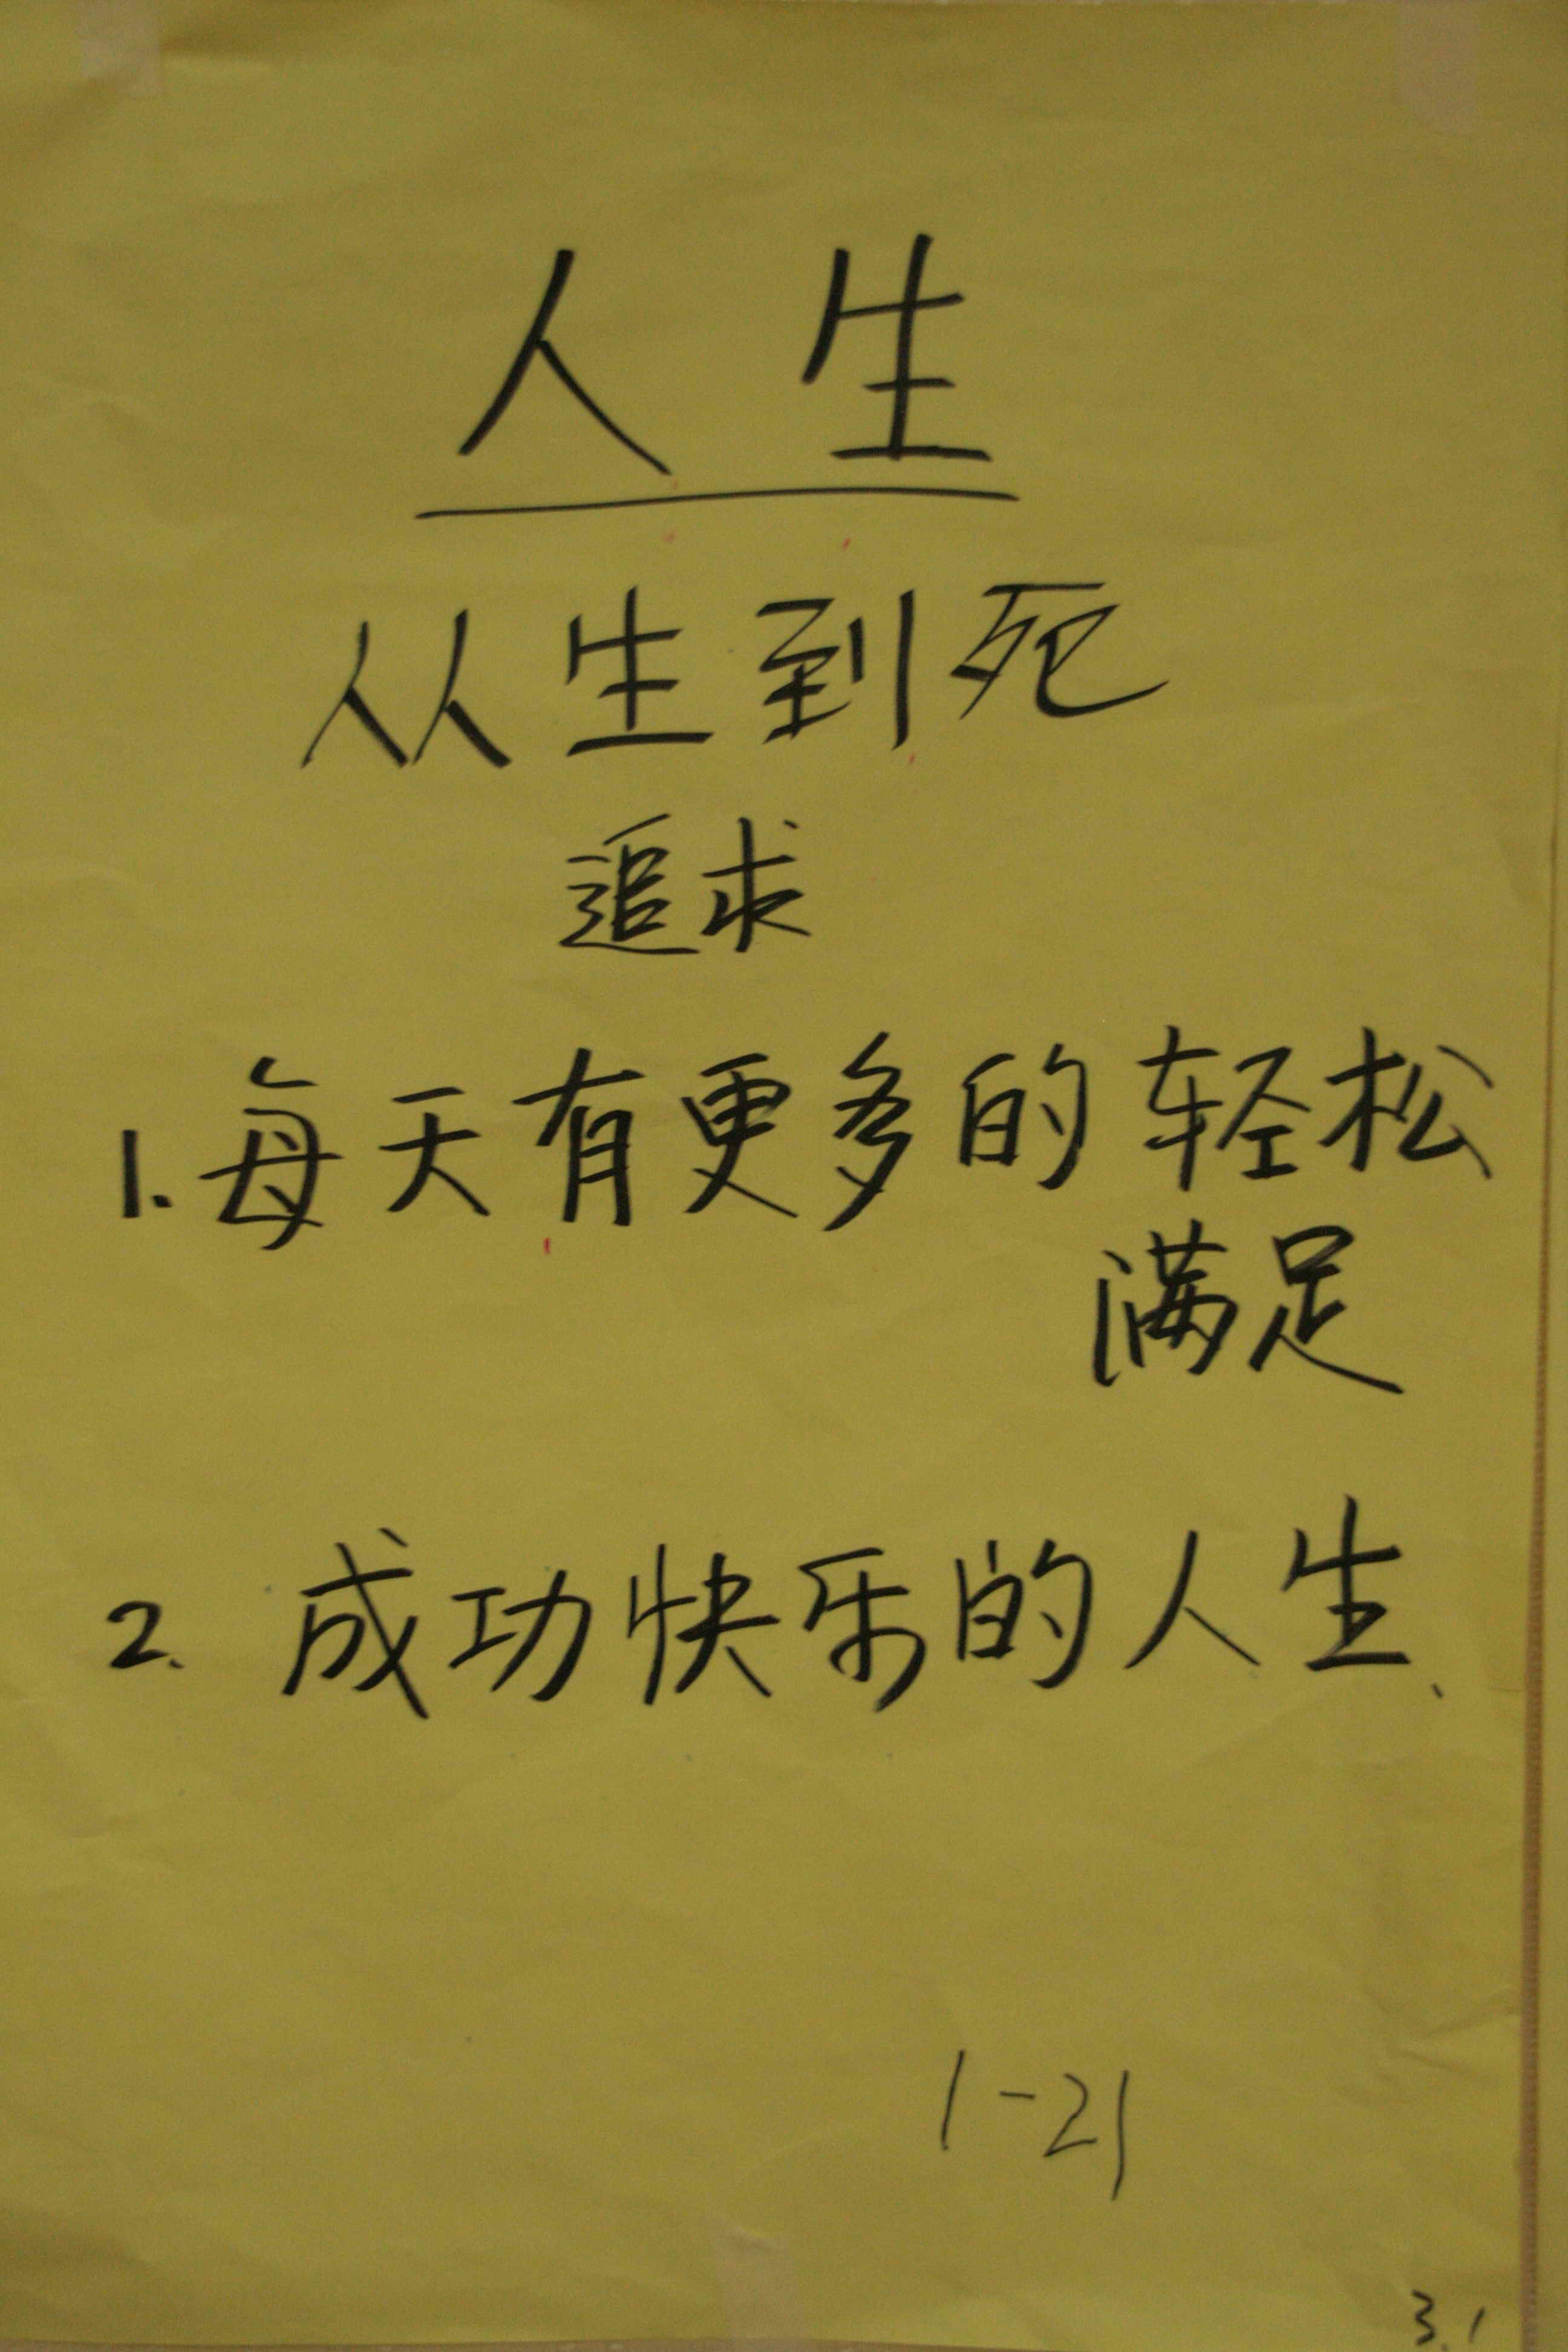 人生
从生到死
追求
1.每天有更多的轻松
满足
2.成功快乐的人生、
1-21
3.1